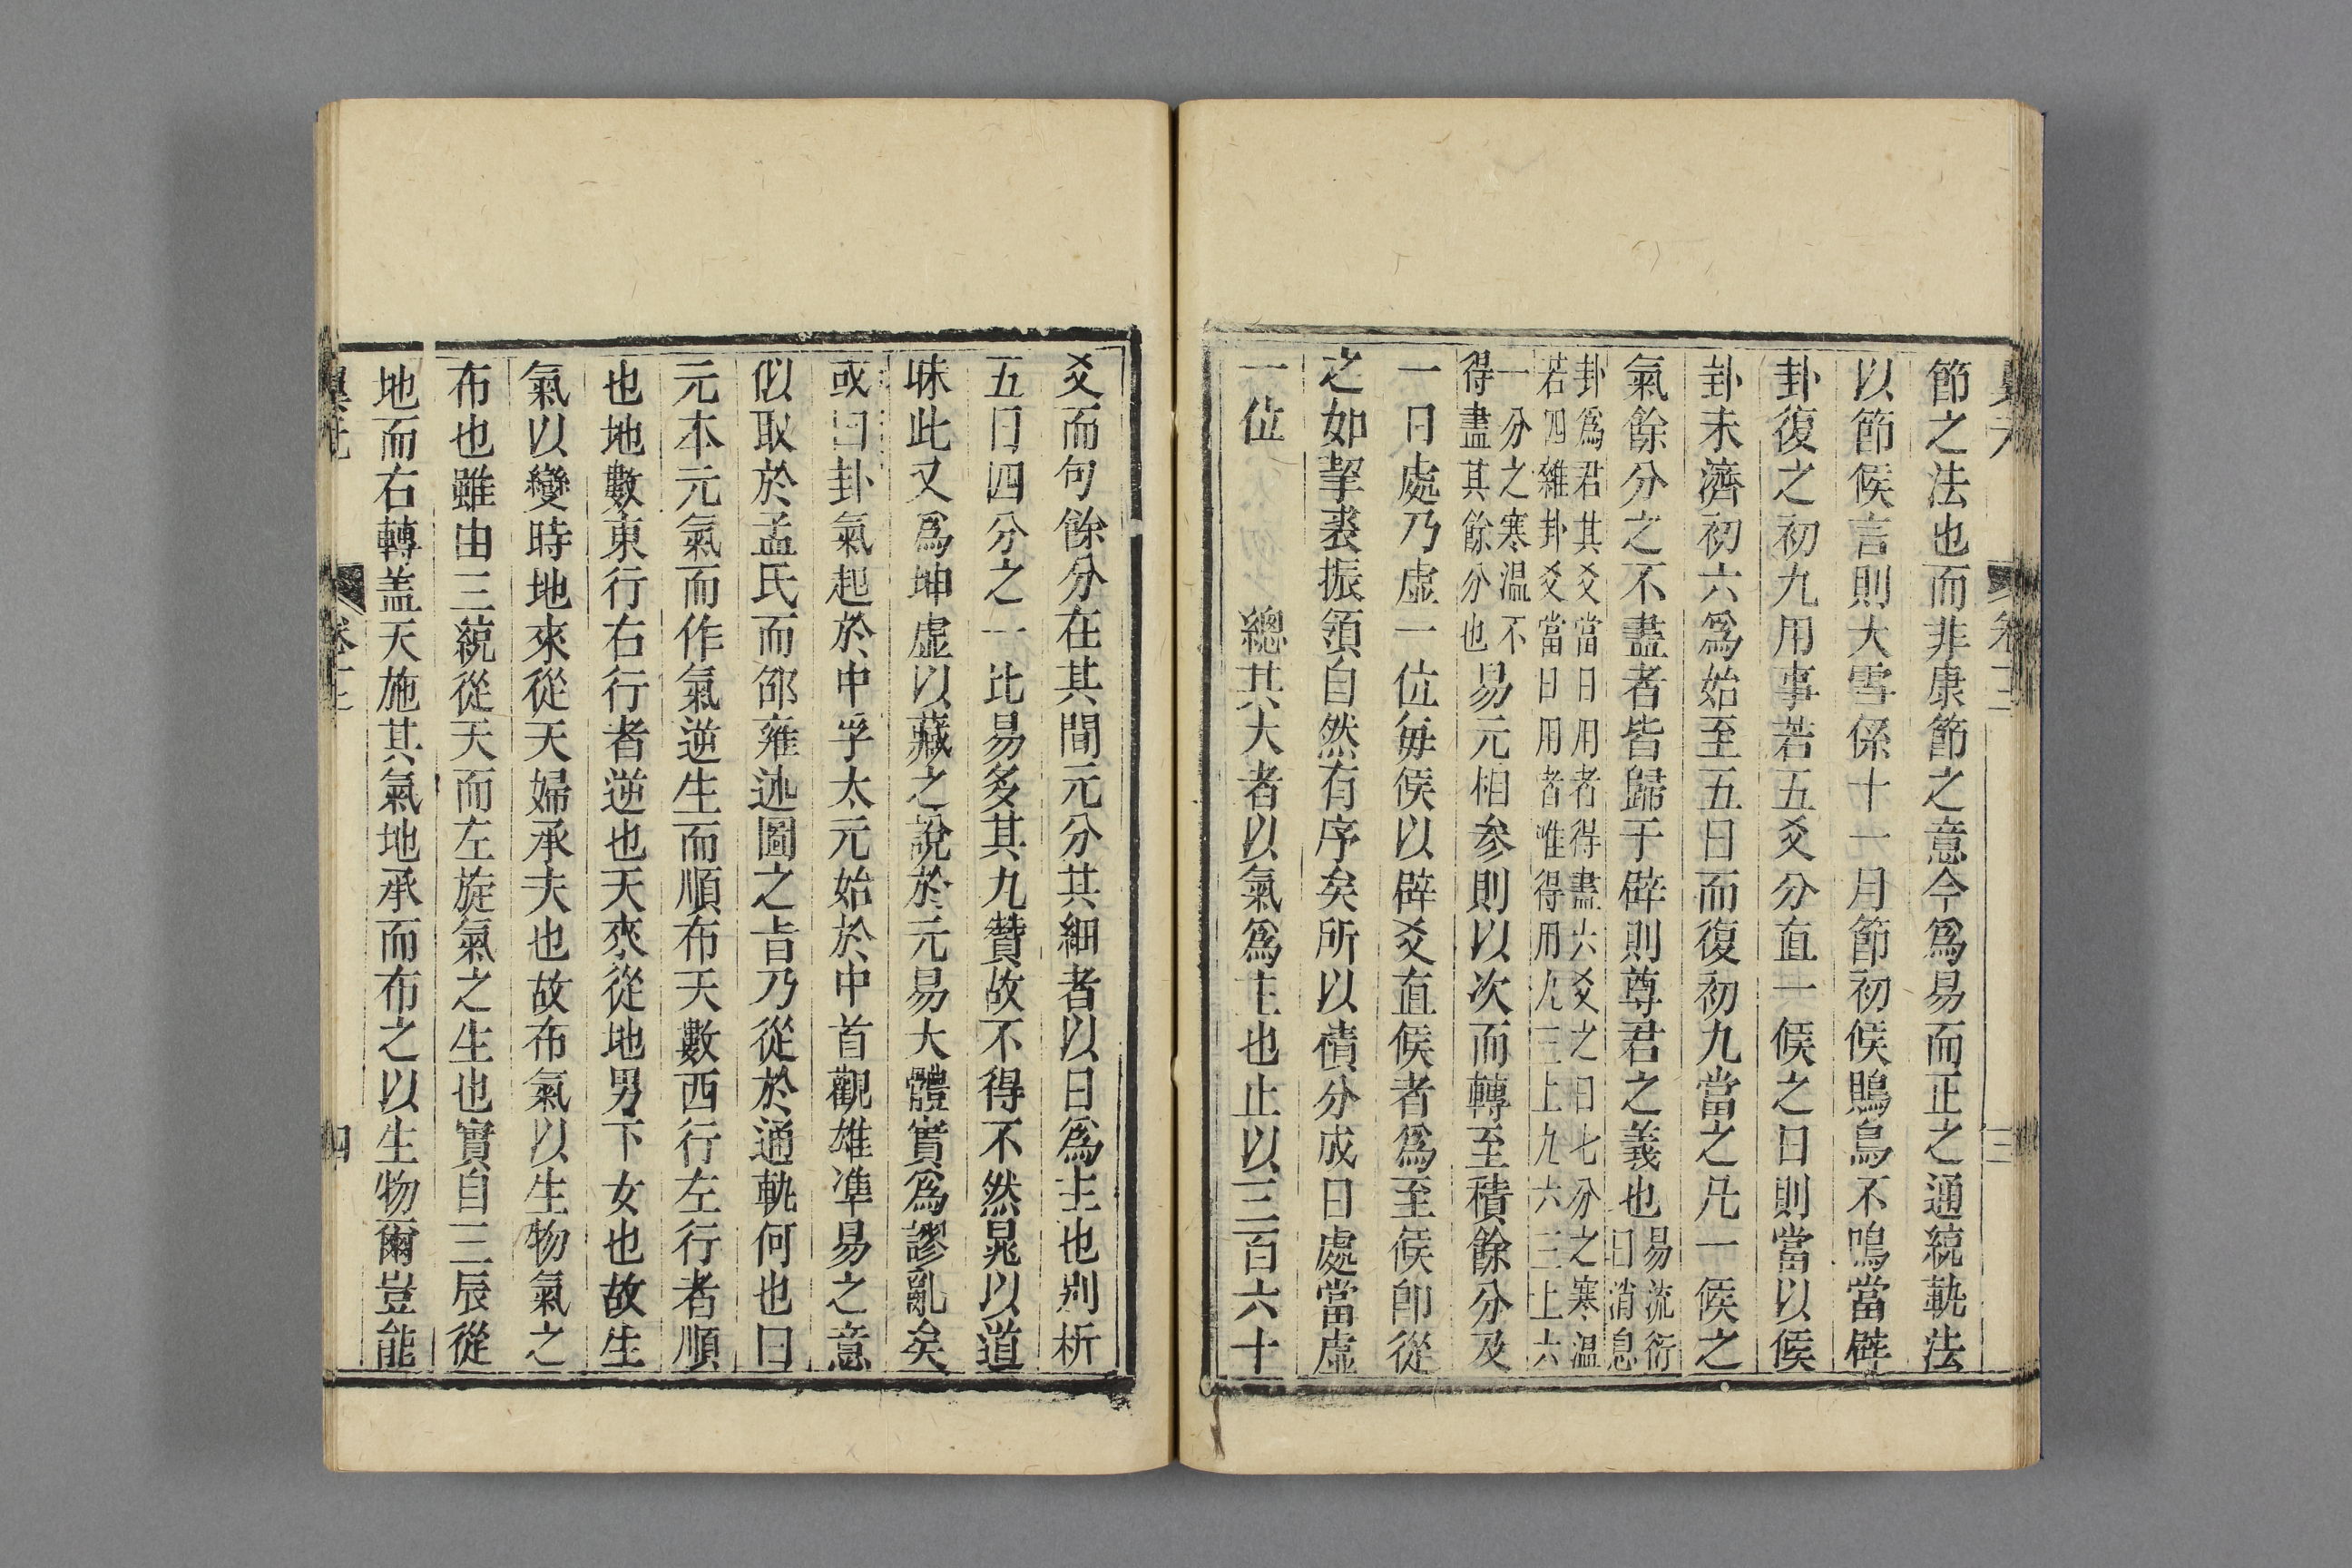 節之法也而非康節之意今爲易而正之通統軌法
以節候言則大雪係十一月節初候鶡鳥不鳴當辟
卦復之初九用事若五爻分直一候之日則當以候
卦未濟初六爲始至五日而復初九當之凡一候之
氣餘分之不盡者皆歸于辟則尊君之義也易流衍
曰消息
卦爲君其爻當日用者得盡六爻之日七分之寒温
若四雜卦爻當日用者唯得用九三上九六三上六
一分之寒温不
得盡其餘分也易元相參則以次而轉至積餘分及
一日處乃虛一位每候以辟爻直候者爲至候卽從
之如挈裘振領自然有序矣所以積分成日處當虛
一位 總其大者以氣爲主也止以三百六十
卷三
三
爻而句餘分在其間元分其細者以日爲主也剡析
五日四分之一比易多其九贊故不得不然晁以道
昧此又爲坤虛以藏之說於元易大體實爲謬亂矣
或曰卦氣起於中孚太元始於中首觀雄準易之意
似取於孟氏而邵雍述圖之旨乃從於通軌何也曰
元本元氣而作氣逆生而順布天數西行左行者順
也地數東行右行者逆也天來從地男下女也故生
氣以變時地來從天婦承夫也故布氣以生物氣之
布也雖由三統從天而左旋氣之生也實自三辰從
地而右轉盖天施其氣地承而布之以生物爾豈能
翼元
四